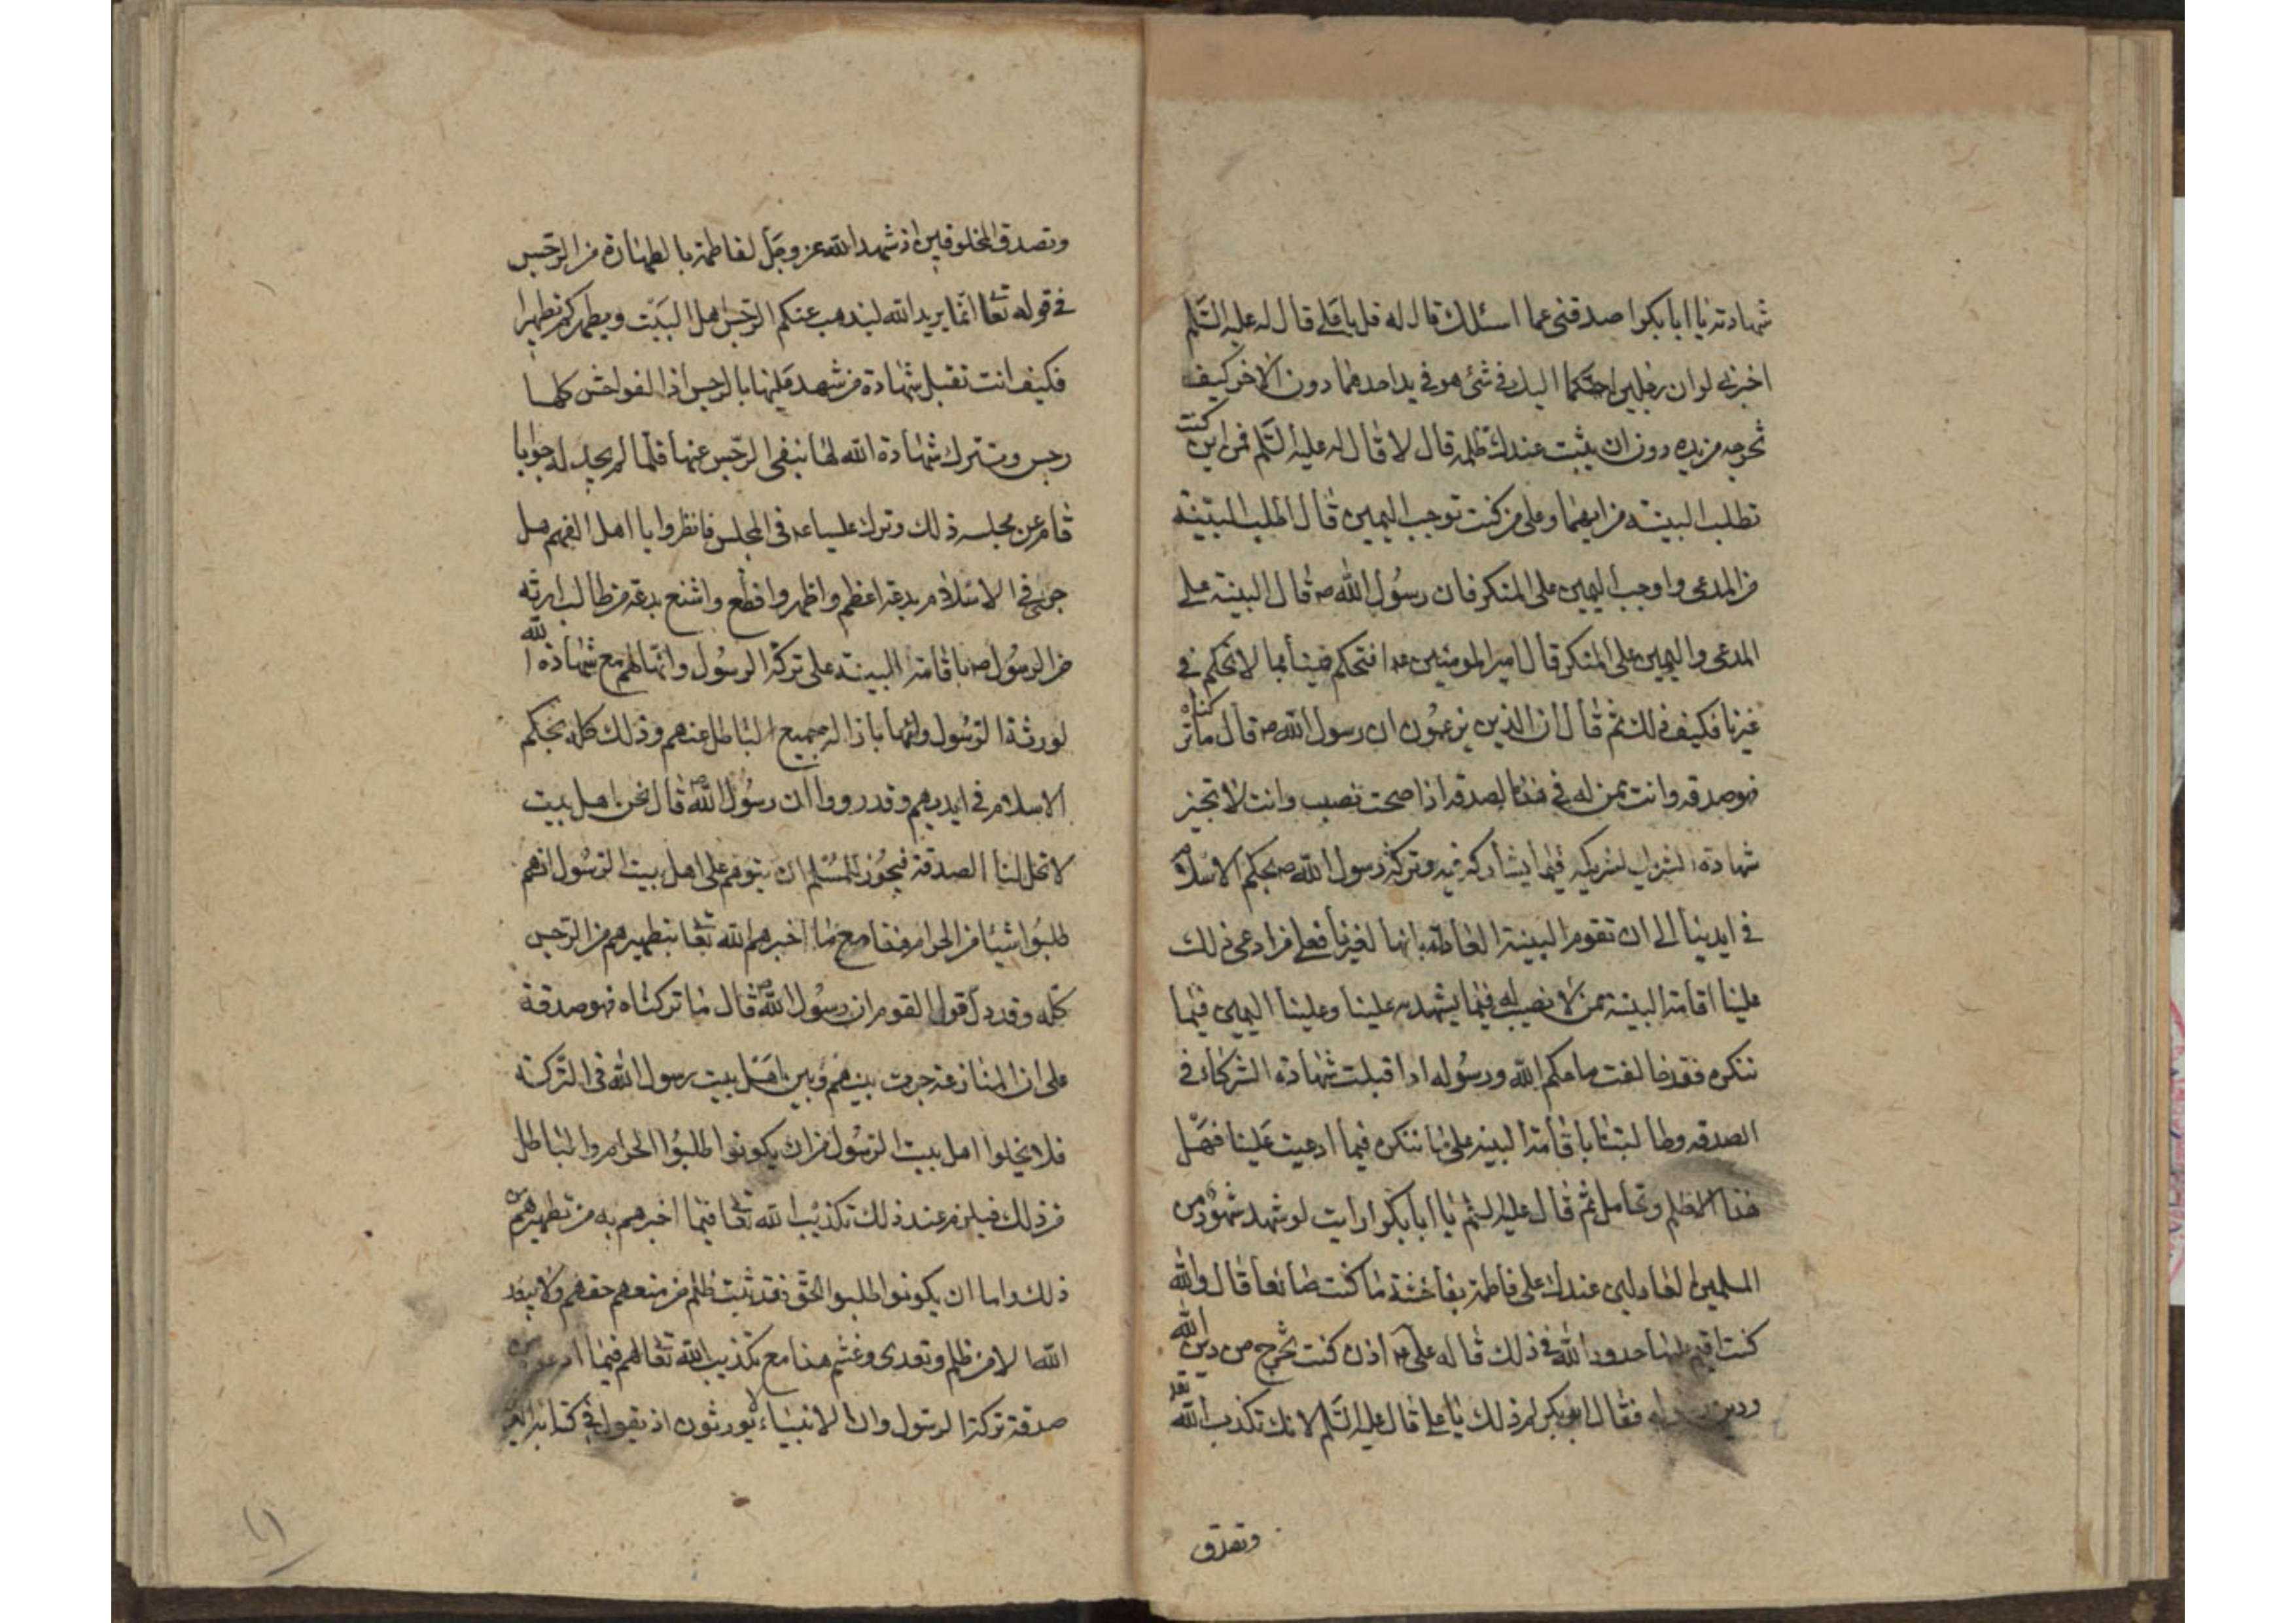 شهادته يا ابا بكر اصدقنى عما اسئلك قال له قل يا على قال له عليه السلم
اخبرنى لو ان رجلين احتكما اليك فى شئ هو فى يد احدهما دون الاخر كيف كنت
تخرجه من يده دون ان يثبت عندك ظلمه قال لا قال له عليه السلم فمن اين
تطلب البينة من ايهما وعلى من كنت توجب اليمين قال اطلب البينة
من المدعى واوجب اليمين على المنكر فان رسول الله ص قال البينة على
المدعى واليمين على المنكر قال امير المومنين ع افتحكم فينا بما لا تحكم فى
غيرنا فكيف ذلك ثم قال ان الذين يزعمون ان رسول الله ص قال ما تركناه
فهو صدقه وانت ممن له فى هذه الصدقه اذا صحت نصيب وانت لا تجيز
شهادة الشريك لشريكه فيما يشاركه فيه وتركة رسول الله ص بحكم الاسلام
فى ايدينا الى ان تقوم البينة العادلة بانها لغيرنا فعلى من ادعى ذلك
علينا اقامة البينة ممن لا نصيب له فيما يشهد به علينا وعلينا اليمين فيما
ننكره فقد خالفت ما حكم الله ورسوله اذا قبلت شهادة الشركاء فى
الصدقه وطالبتنا باقامة البينه على ما ننكره فيما ادعيت علينا فهل
هذا الا ظلم وتحامل ثم قال عليه السلم يا ابا بكر ارايت لو شهد شهود من
المسلمين العادلين عندك على فاطمة بفاحشة ما كنت صانعا قال والله
كنت اقيم عليها حدود الله فى ذلك قال له على ع اذن كنت تخرج من دين الله
ودين فقال ابو بكر لم ذلك يا على قال عليه السلم لانك تكذب الله
وتصدق
وتصدق المخلوقين اذ شهد الله عز وجل لفاطمة بالطهارة من الرجس
فى قوله تعا انما يريد الله ليذهب عنكم الرجس اهل البيت ويطهركم تطهيرا
فكيف انت تقبل شهادة من شهد عليها بالرجس اذ الفواحش كلها
رجس وتترك شهادة الله لها بنفى الرجس عنها فلما لم يجد له جوابا
قام عن مجلسه ذلك وترك عليا ع فى المجلس فانظروا يا اهل الفهم هل
جرى فى الاسلام بدعة اعظم واظهر وافظع واشنع بدعة من طالب ارثه
من الرسول ص باقامة البينة على تركة الرسول وانها لهم مع شهادة الله
لورثة الرسول وانها بازالة جميع الباطل عنهم وذلك كله بحكم
الاسلام فى ايديهم وقد رووا ان رسول الله ص قال نحن اهل بيت
لا تحل لنا الصدقة فيجوز للمسلم ان يتوهم على اهل بيت الرسول انهم
طلبوا شيئا من الحرام فقام مع ما اخبرهم الله تعا بتطهيرهم من الرجس
كله وقد دل قول القوم ان رسول الله ص قال ما تركناه فهو صدقة
على ان المنازعة جرت بينهم وبين اهل بيت رسول الله فى التركة
فلا يخلوا اهل بيت الرسول من ان يكونوا طلبوا الحرام والباطل
من ذلك فيلزم عند ذلك تكذيب الله تعا فيما اخبرهم به من تطهيرهم من
ذلك واما ان يكونوا طلبوا الحق فقد ثبت ظلم من منعهم حقهم ولا يبعد
الله الا من ظلم وتعدى وغشم هذا مع تكذيب الله تعا لهم فيما ادعوه من
صدقة تركة الرسول وان الانبياء لا يورثون اذ يقول فى كتابه